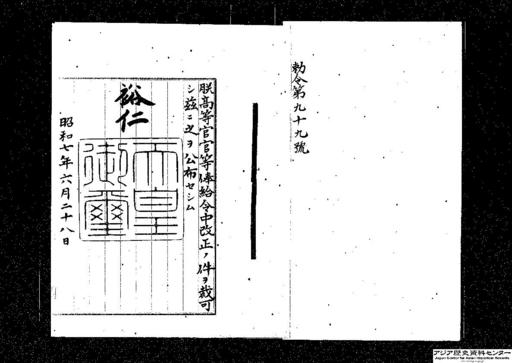 勅令第九十九號
朕高等官官等俸給令中改正ノ件ヲ裁可
シ茲ニ之ヲ公布セシム
裕仁
天皇
御璽
昭和七年六月二十八日
アジア歴史資料センター
Japan Center for Asian Historical Records